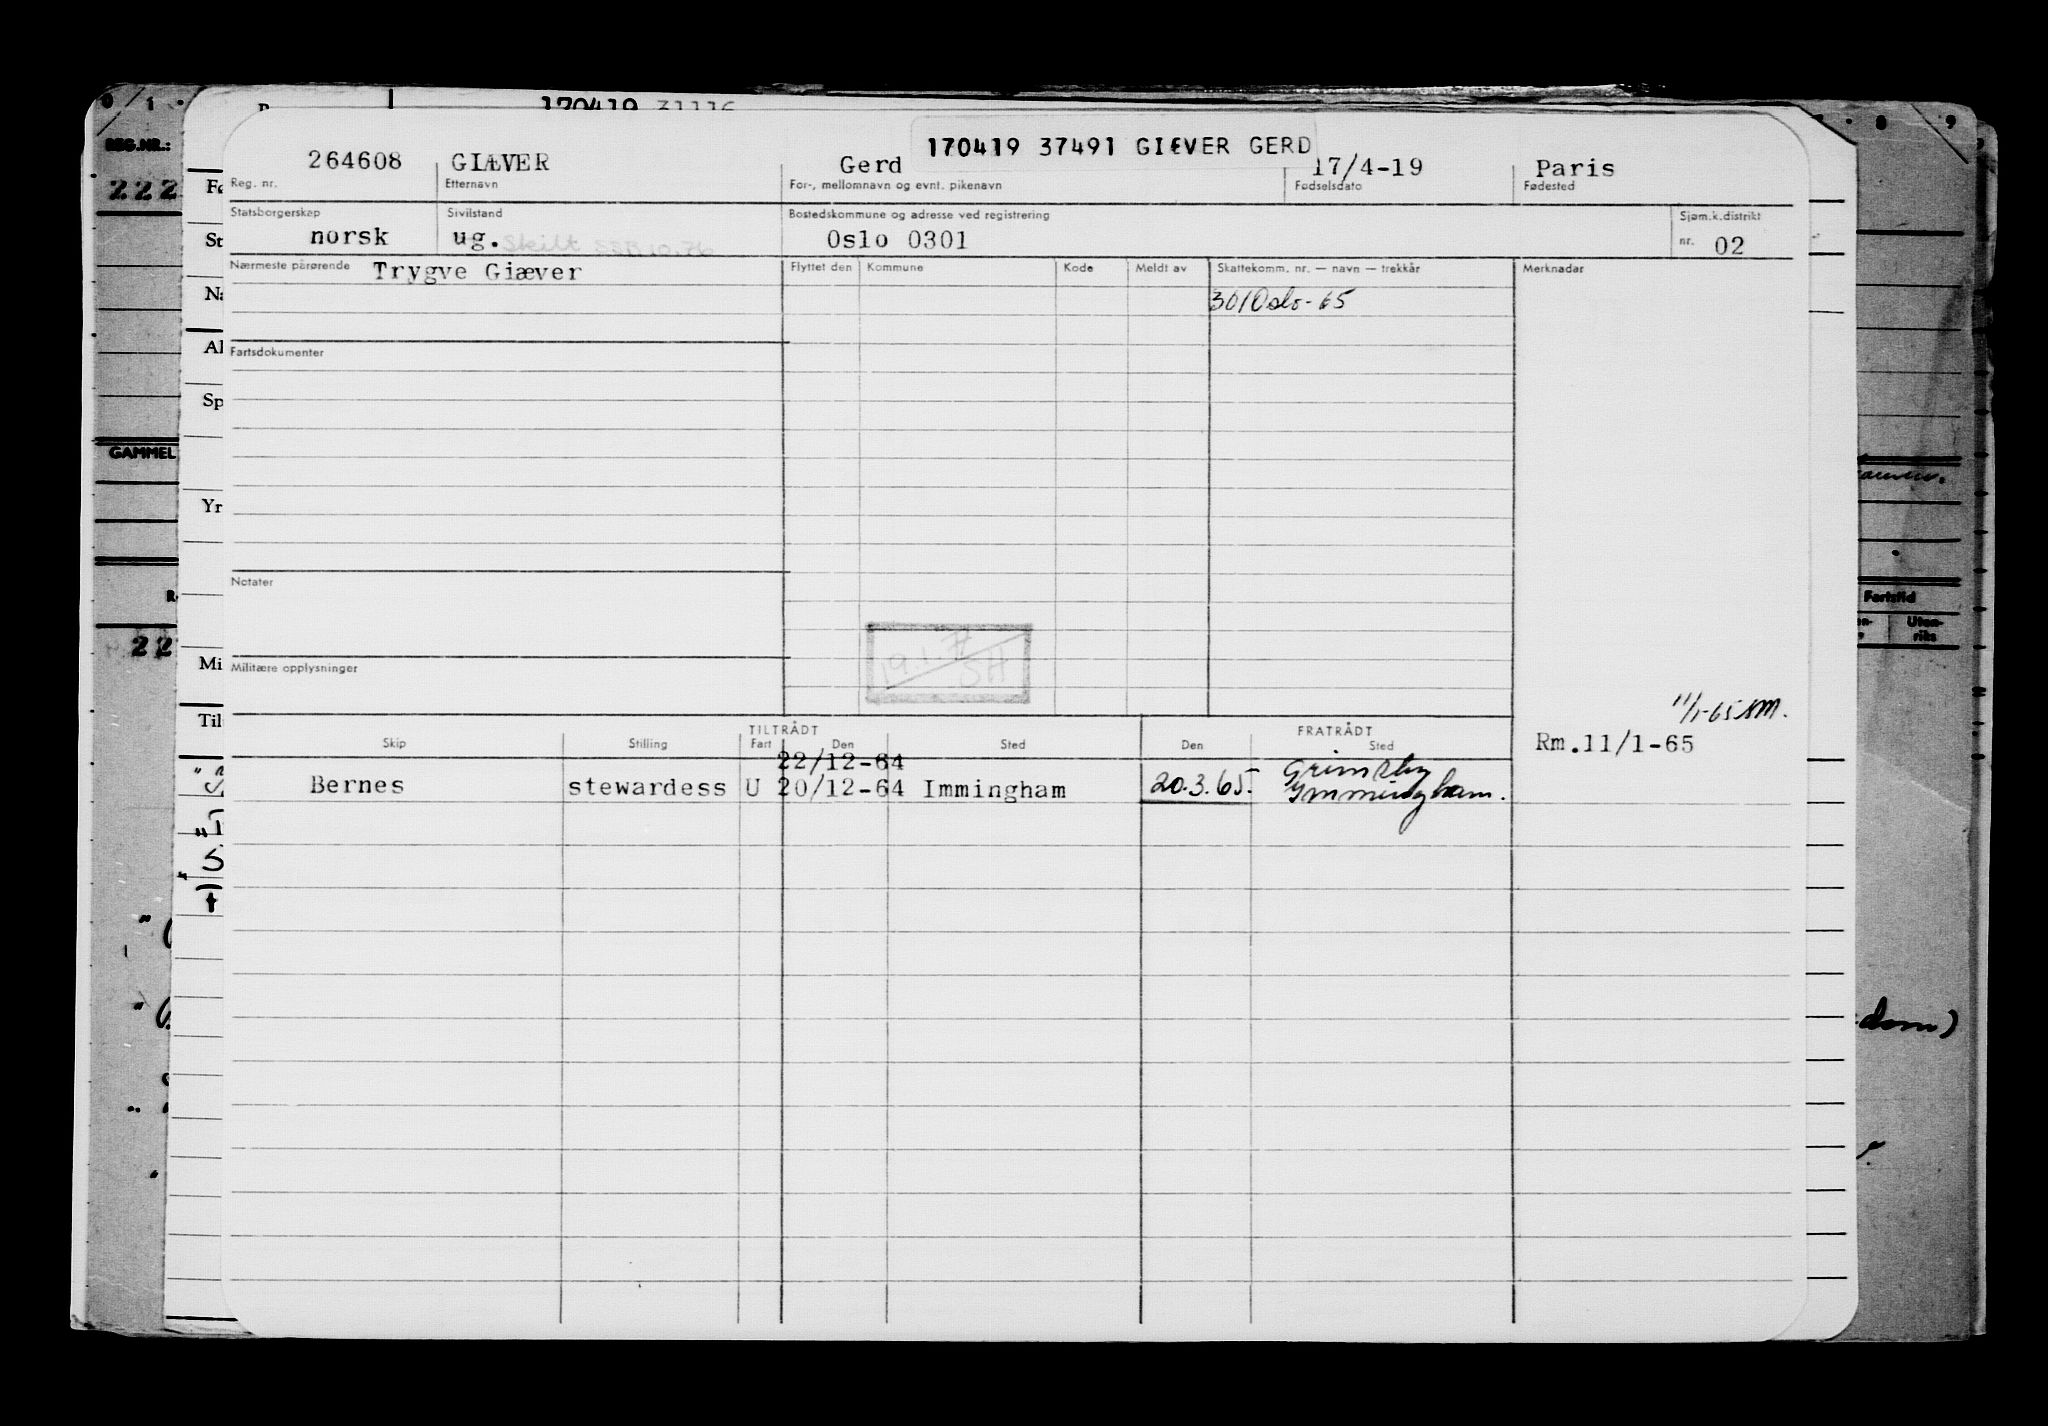 170419 31116
170419 37491 GIÆVER GERD
264608 GIÆVER Gerd 17/4-19 Paris
Reg. nr. Etternavn For-, mellomnavn og evnt. pikenavn Fødselsdato Fødested
Statsborgerskap Sivilstand Bostedskommune og adresse ved registrering Sjøm.k.distrikt
norsk ug. Skilt SSB 10.76 Oslo 0301 nr. 02
Nærmeste pårørende Trygve Giæver Flyttet den Kommune Kode Meldt av Skattekomm. nr. — navn — trekkår Merknader
301 Oslo-65
Fartsdokumenter
Notater
Militære opplysninger
11/1-65
TILTRÅDT FRATRÅDT
Skip Stilling Fart Den Sted Den Sted Rm.11/1-65
22/12-64 Grimsby
Bernes stewardess U 20/12-64 Immingham 20.3.65. Immingham.
0 1 8 9
REG.NR.:
222
GAMMEL
22
Fø
St
Na
Al
Sp
Yr
Mi
Til
Fartstid
Uten-
riks
dom)